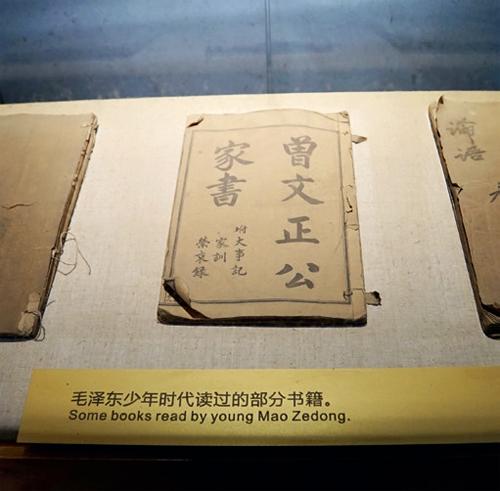 曾文正公
家書
附大事記
家訓
榮哀錄
論語
毛泽东少年时代读过的部分书籍。
Some books read by young Mao Zedong.